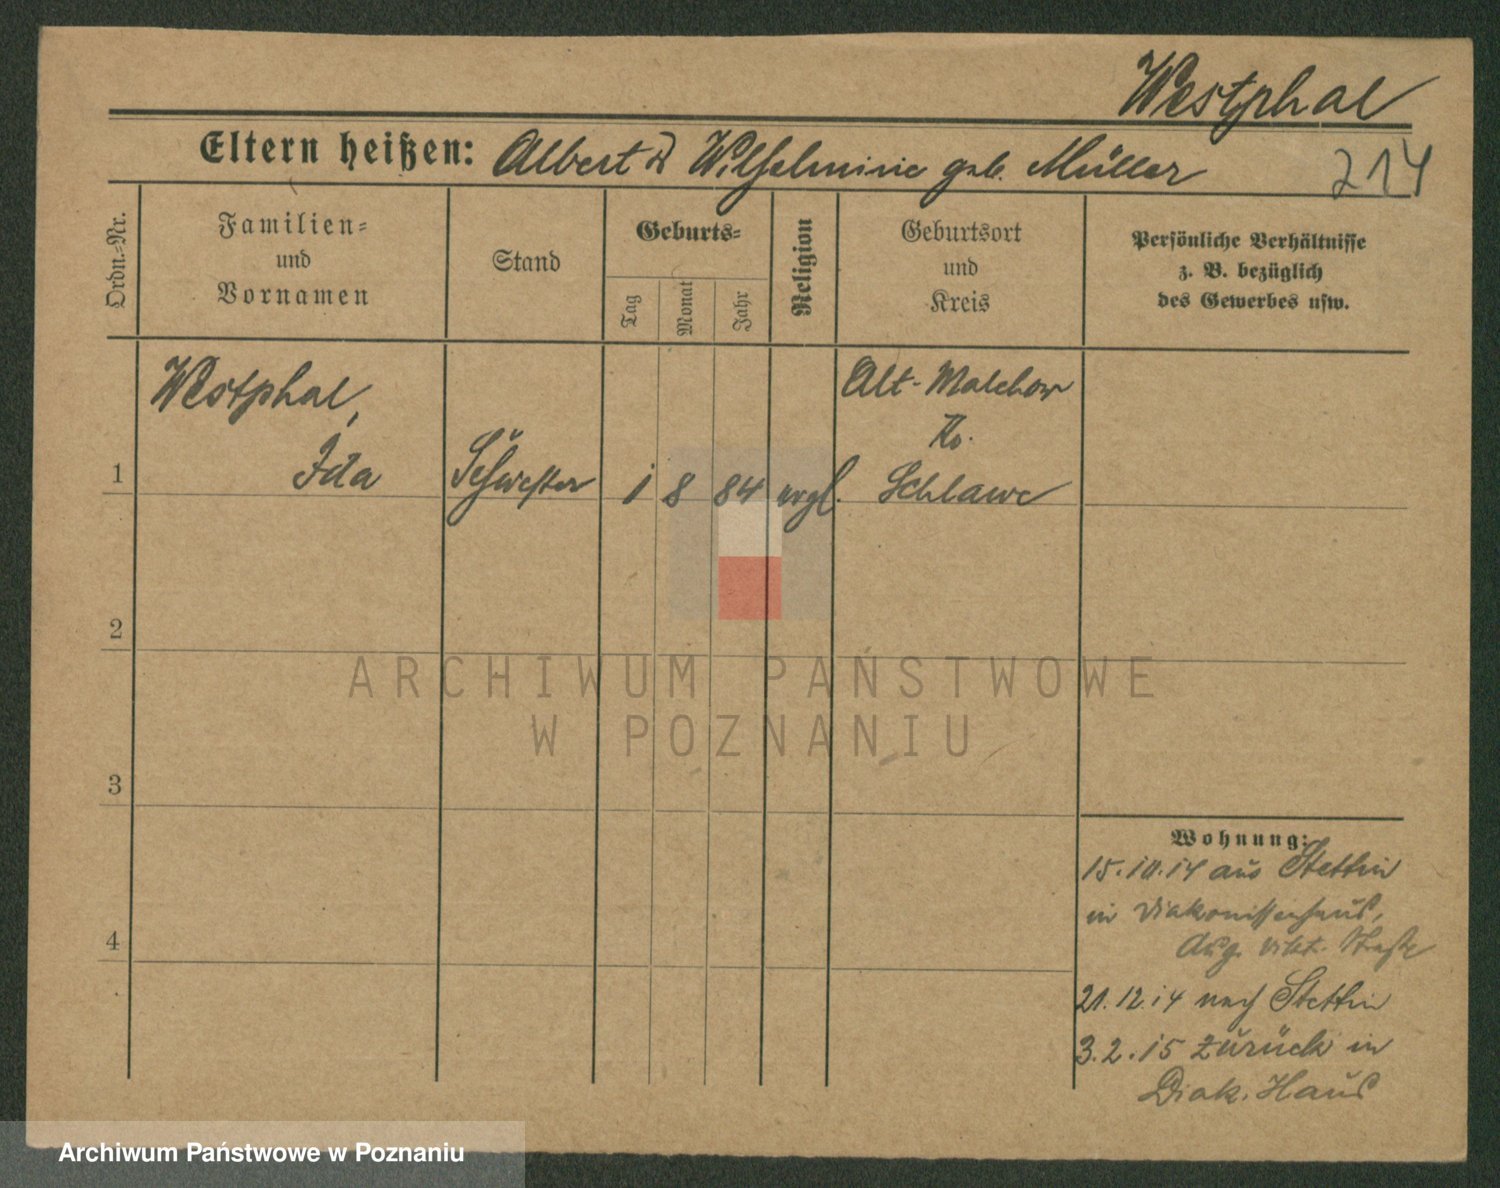 Westphal
Eltern heißen: Albert u Wilhelmine geb. Müller
214
Ordn.-Nr.
Familien-
und
Vornamen
Stand
Geburts-
Tag
Monat
Jahr
Religion
Geburtsort
und
Kreis
Persönliche Verhältnisse
z. B. bezüglich
des Gewerbes usw.
1
Westphal,
Ida
Schwester
1
8
84
evgl.
Alt-Malchow
Kr.
Schlawe
2
3
4
Wohnung:
15.10.14 aus Stettin
in Diakonissenhaus,
Aug. Vikt. Straße
21.12.14 nach Stettin
3.2.15 zurück in
Diak. Haus
ARCHIWUM PAŃSTWOWE
W POZNANIU
Archiwum Państwowe w Poznaniu